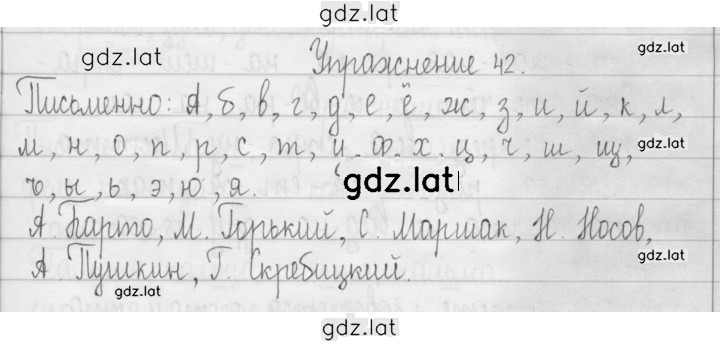 gdz.lat
gdz.lat
gdz.lat
Упражнение 42.
Письменно: А, б, в, г, д, е, ё, ж, з, и, й, к, л,
м, н, о, п, р, с, т, у, ф, х, ц, ч, ш, щ,
gdz.lat
ъ, ы, ь, э, ю, я.
gdz.lat
А Барто, М. Горький, С. Маршак, Н. Носов,
gdz.lat
А. Пушкин, Г. Скребицкий.
gdz.lat
gdz.lat